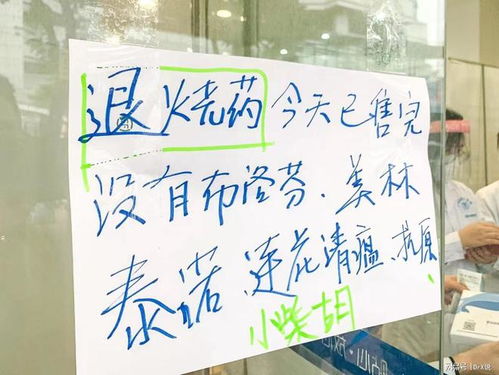 退烧药 今天已售完
没有布洛芬、美林
泰诺、莲花清瘟、抗原、
小柴胡